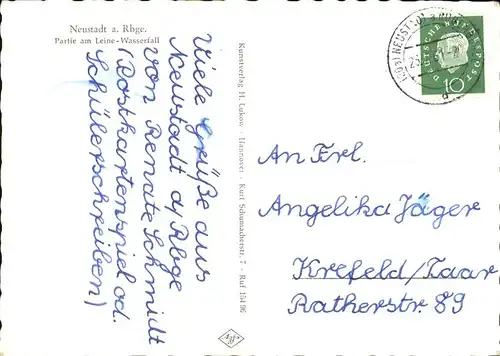 Neustadt a. Rbge.
Partie am Leine-Wasserfall
Viele Grüße aus
Neustadt a/Rbge
von Renate Schmidt
(Postkartenspiel od.
Schülerschreiben)
Kunstverlag H. Lukow · Hannover · Kurt Schumacherstr. 7 - Ruf 154 96
NEUSTADT
DEUTSCHE BUNDESPOST
10
An Frl.
Angelika Jäger
Krefeld/Traar
Ratherstr. 89